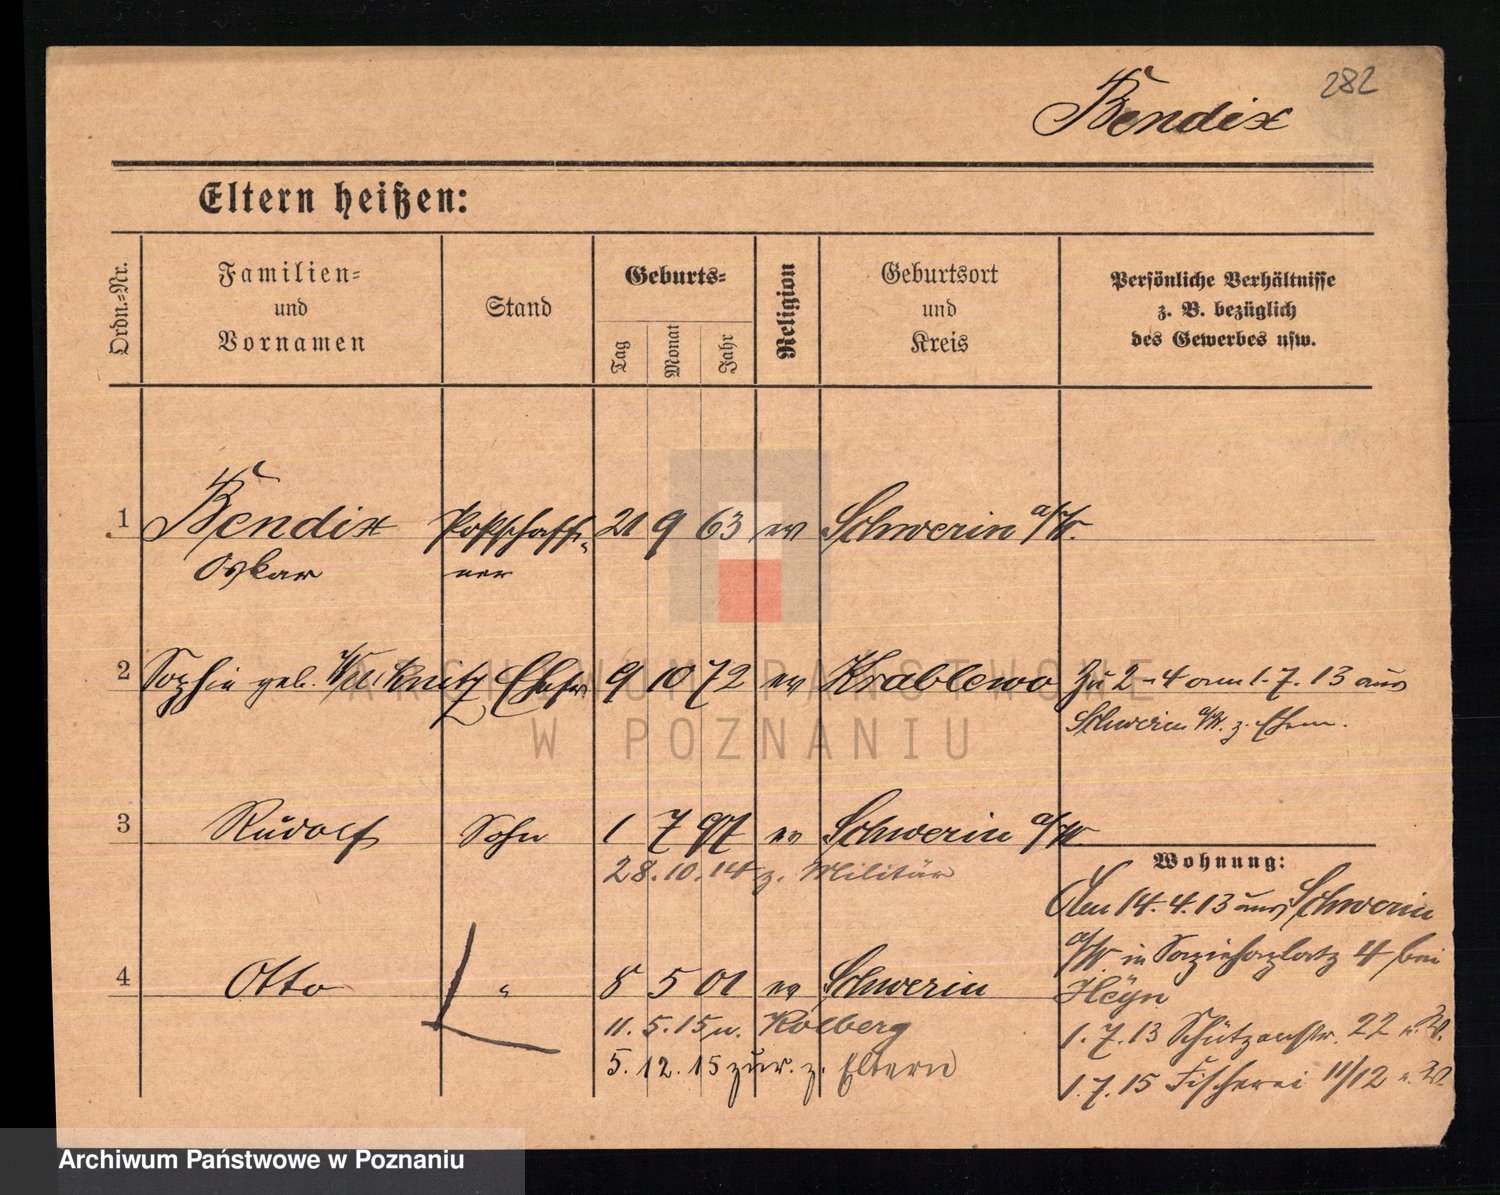 282
Bendix
Eltern heißen:
Ordn.-Nr.
Familien-
und
Vornamen
Stand
Geburts-
Tag
Monat
Jahr
Religion
Geburtsort
und
Kreis
Persönliche Verhältnisse
z. B. bezüglich
des Gewerbes usw.
1 Bendix Postschaff- 21 9 63 ev Schwerin a/W.
Oskar ner
2 Sophie geb. Ehefr 9 10 72 ev Krablewo Zu 2-4 am 1.7.13 aus
Schwerin a/W. z. Ehem.
3 Rudolf Sohn 1 7 97 ev Schwerin a/W.
28.10.14 z. Militär
Wohnung:
Am 14.4.13 aus Schwerin
a/W in Sapiehaplatz 4 bei
Heyn
4 Otto " 8 5 01 ev Schwerin
11.5.15 n. Kolberg
5.12.15 zur. z. Eltern
1.7.13 Schützenstr. 22 u. W.
1.7.15 Fischerei 11/12 u. W
ARCHIWUM PAŃSTWOWE
W POZNANIU
Archiwum Państwowe w Poznaniu